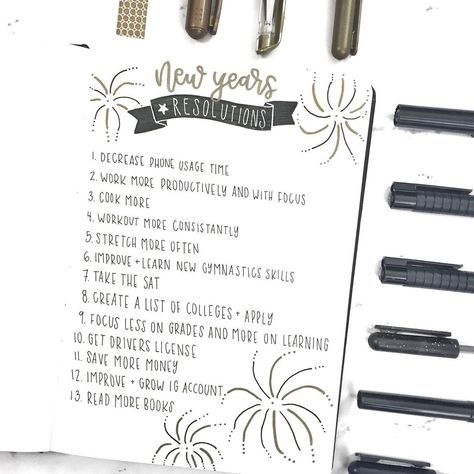 new years
RESOLUTIONS
1. DECREASE PHONE USAGE TIME
2. WORK MORE PRODUCTIVELY AND WITH FOCUS
3. COOK MORE
4. WORKOUT MORE CONSISTANTLY
5. STRETCH MORE OFTEN
6. IMPROVE + LEARN NEW GYMNASTICS SKILLS
7. TAKE THE SAT
8. CREATE A LIST OF COLLEGES + APPLY
9. FOCUS LESS ON GRADES AND MORE ON LEARNING
10. GET DRIVERS LICENSE
11. SAVE MORE MONEY
12. IMPROVE + GROW IG ACCOUNT
13. READ MORE BOOKS